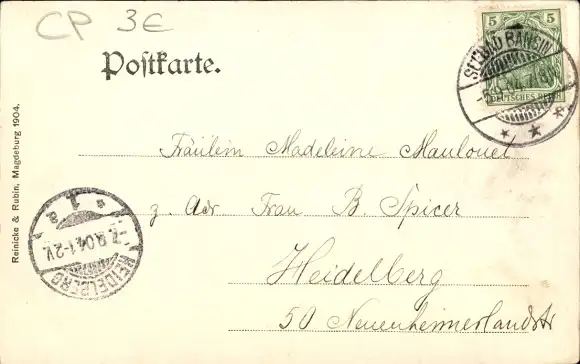 CP 3E
Postkarte.
5 5
DEUTSCHES REICH
SEEBAD BANSIN
Reinicke & Rubin, Magdeburg 1904.
Fräulein Madeleine Mauloued
z. Adr Frau B. Spicer
Heidelberg
50 Neuenheimerlandstr
7.8.04.1-2V.
HEIDELBERG